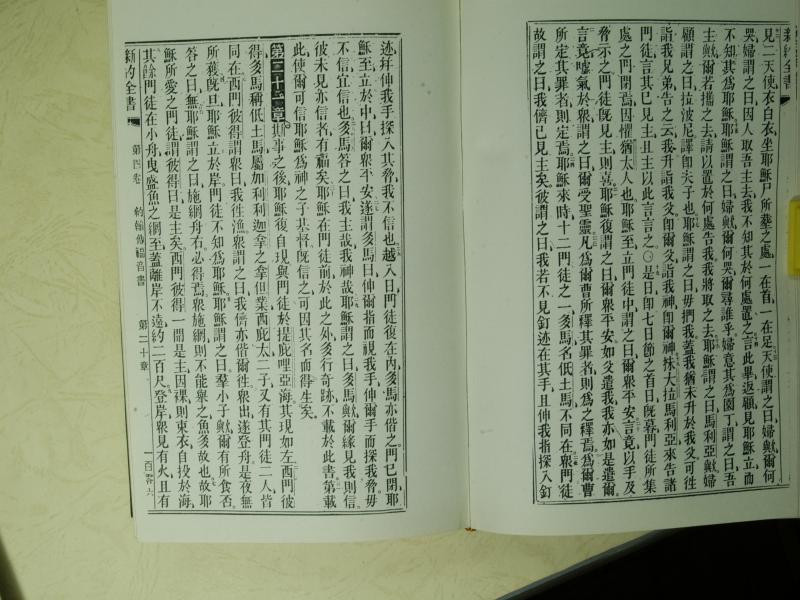 見二天使衣白衣坐耶穌尸所葬之處一在首一在足天使謂之曰婦歟爾何
哭婦謂之曰因人取吾主去我不知其於何處置之言此畢返顧見耶穌立而
不知其爲耶穌耶穌謂之曰婦歟爾何哭爾尋誰乎婦意其爲園丁謂之曰吾
主歟爾若攜之去請以置於何處告我我將取之去耶穌謂之曰馬利亞歟婦
顧謂之曰拉波尼譯卽夫子也耶穌謂之曰毋捫我蓋我猶未升於我父可往
詣我兄弟告之云我升詣我父卽爾父詣我神卽爾神抹大拉馬利亞來告諸
門徒言其已見主且主以此言言之〇是日卽七日節之首日旣暮門徒所集
處之門閉焉因懼猶太人也耶穌至立門徒中謂之曰爾衆平安言竟以手及
脅示之門徒旣見主則喜耶穌復謂之曰爾衆平安如父遣我我亦如是遣爾
言竟噓氣於衆謂之曰爾受聖靈凡爲爾曹所釋其罪者則爲之釋焉爲爾曹
所定其罪者則定焉耶穌來時十二門徒之一多馬名低土馬不同在衆門徒
故謂之曰我儕已見主矣彼謂之曰我若不見釘迹在其手且伸我指探入釘
新約全書
迹幷伸我手探入其脅我不信也越八日門徒復在內多馬亦偕之門已閉耶
穌至立於中曰爾衆平安遂謂多馬曰伸爾指而視我手伸爾手而探我脅毋
不信宜信也多馬答之曰我主哉我神哉耶穌謂之曰多馬歟爾緣見我則信
彼未見亦信者有福矣耶穌在門徒前於此之外多行奇跡不載於此書第載
此使爾可信耶穌爲神之子基督旣信之可因其名而得生矣
第二十一章此事之後耶穌復自現與門徒於提庇哩亞海其現如左西門彼
得多馬稱低土馬屬加利利迦拿之拿但業西庇太二子又有其門徒二人皆
同在西門彼得謂衆曰我往漁衆謂之曰我儕亦偕爾往衆出遂登舟是夜無
所獲旣旦耶穌立於岸門徒不知爲耶穌耶穌謂之曰羣小子歟爾有所食否
答之曰無耶穌謂之曰施網舟右必得焉衆施網則不能舉之魚多故也故耶
穌所愛之門徒謂彼得曰是主矣西門彼得一聞是主因裸則束衣自投於海
其餘門徒在小舟曳盛魚之網至蓋離岸不遠約二百尺登岸衆見有火且有
新約全書 第四卷 約翰傳福音書 第二十章 一百零六